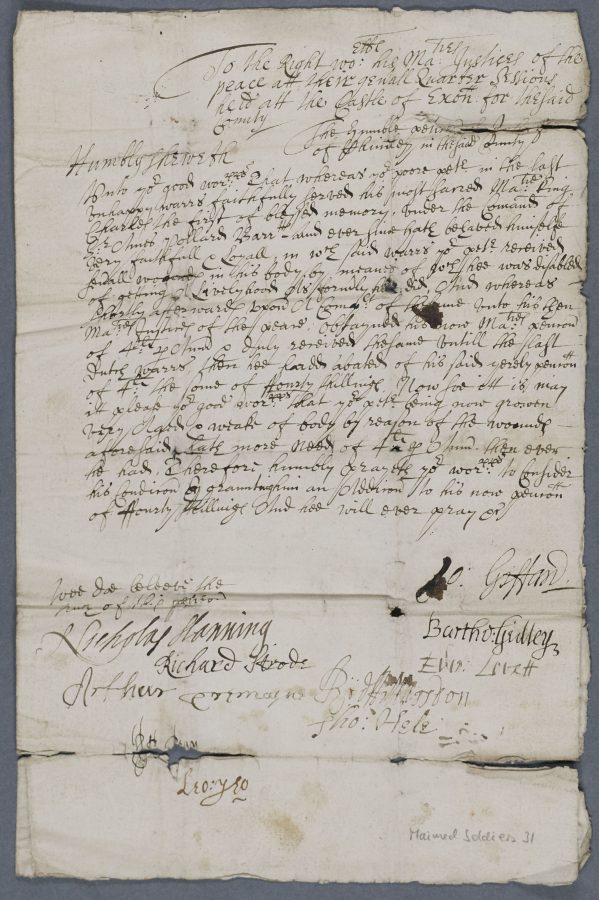 To the Right wo:ppll his Ma:ties Justices of the
peace att their genall Quarter Sessions
held att the Castle of Exon for the said
County
The humble peticon
of in the said County
Humbly sheweth
Unto yor good wor:pps That whereas yor poore petr: in the last
unhappy warrs faithfully served his most sacred Ma:tie King
Charles the first of blessed memory, under the Comand of
Sr: Ames Pollard Barrtt and ever since hath behaved himselfe
very faithfull & Loyall in wch said warrs yor petr: received
seuall wounds in his body by meanes of wch hee was disabled
of getting A Livelyhood As formerly hee did And whereas
shortly afterward upon A of the same unto his then
Ma:ties Justices of the peace obtayned his now Ma:ties pencon
of 4li p Annu & duly received the same untill the last
Dutch warrs, then hee hadd abated of his said yerely pencon
of 4li the some of Fourty shillings Now soe itt is may
it please yor good wor:pps that yor petr: being now growen
very Aged & weake of body by reason of the wounds
aforesaid, hath more need of 4li p Annu then ever
he had, Therefore humbly prayeth yor wor:pps to Consider
his Condicon by graunting him an Addicon to his now pencon
of Fourty shillings And hee will ever pray &c
Wee doe beleeve the
of this peticon
Jo: Giffard
Nicholas Slanning
Barth: Gidley
Richard Strode
Edw: Lovett
Arthur Tremayne
Tho: Hele
Leo: Yeo
Maimed Soldiers 31